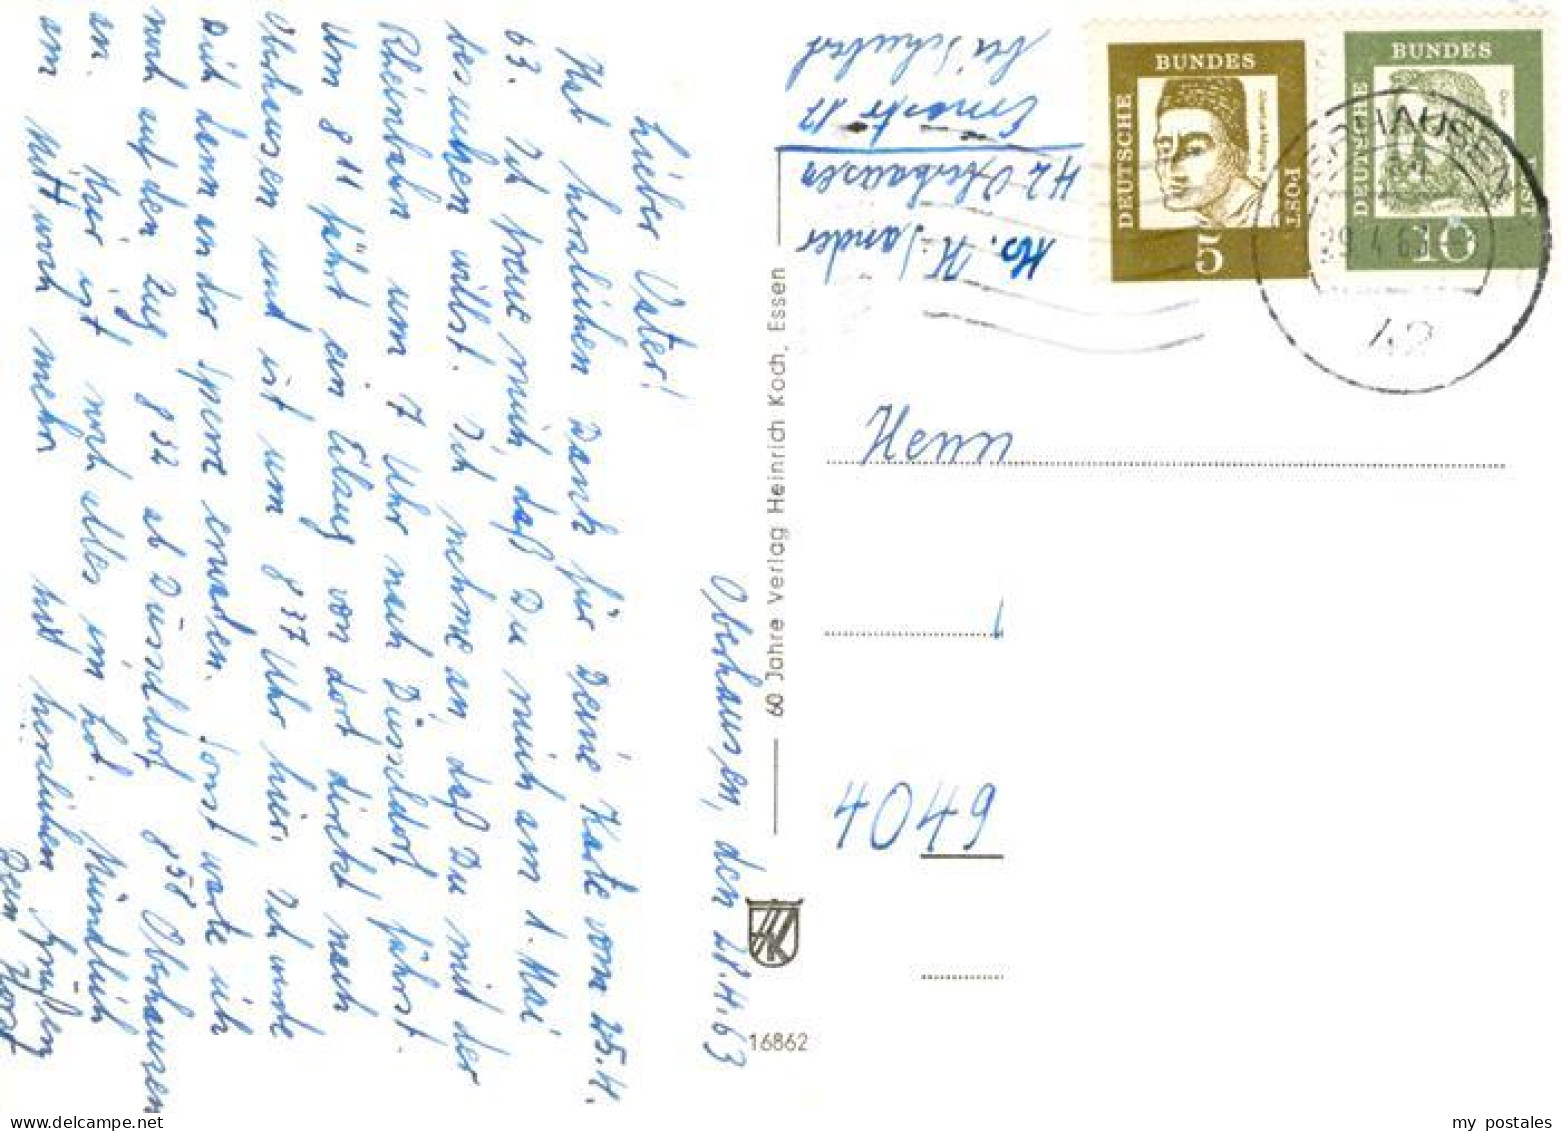 Oberhausen, den 28.4.63
Lieber Vater!
Hab herzlichen Dank für Deine Karte vom 25.4.
63. Ich freue mich, daß Du mich am 1. Mai
besuchen willst. Ich nehme an, daß Du mit der
Rheinbahn um 7 Uhr nach Düsseldorf fährst.
Um 8 11 fährt ein Eilzug von dort direkt nach
Oberhausen und ist um 8 37 Uhr hier. Ich werde
Dich dann an der Sperre erwarten. Sonst warte ich
noch auf den Zug 8 32 ab Düsseldorf 8 58 Oberhausen
an. Hier ist noch alles im Lot. Mündlich
am Mittwoch mehr
Mit herzlichen Grüßen
Dein Horst
60 Jahre Verlag Heinrich Koch, Essen
HK
16862
H. Sander
42 Oberhausen
Ernastr 12
bei Schubert
DEUTSCHE
BUNDES
POST
5
Albertus Magnus
DEUTSCHE
BUNDES
POST
10
Dürer
OBERHAUSEN
29.4.63
42
Herrn
4049
my postales